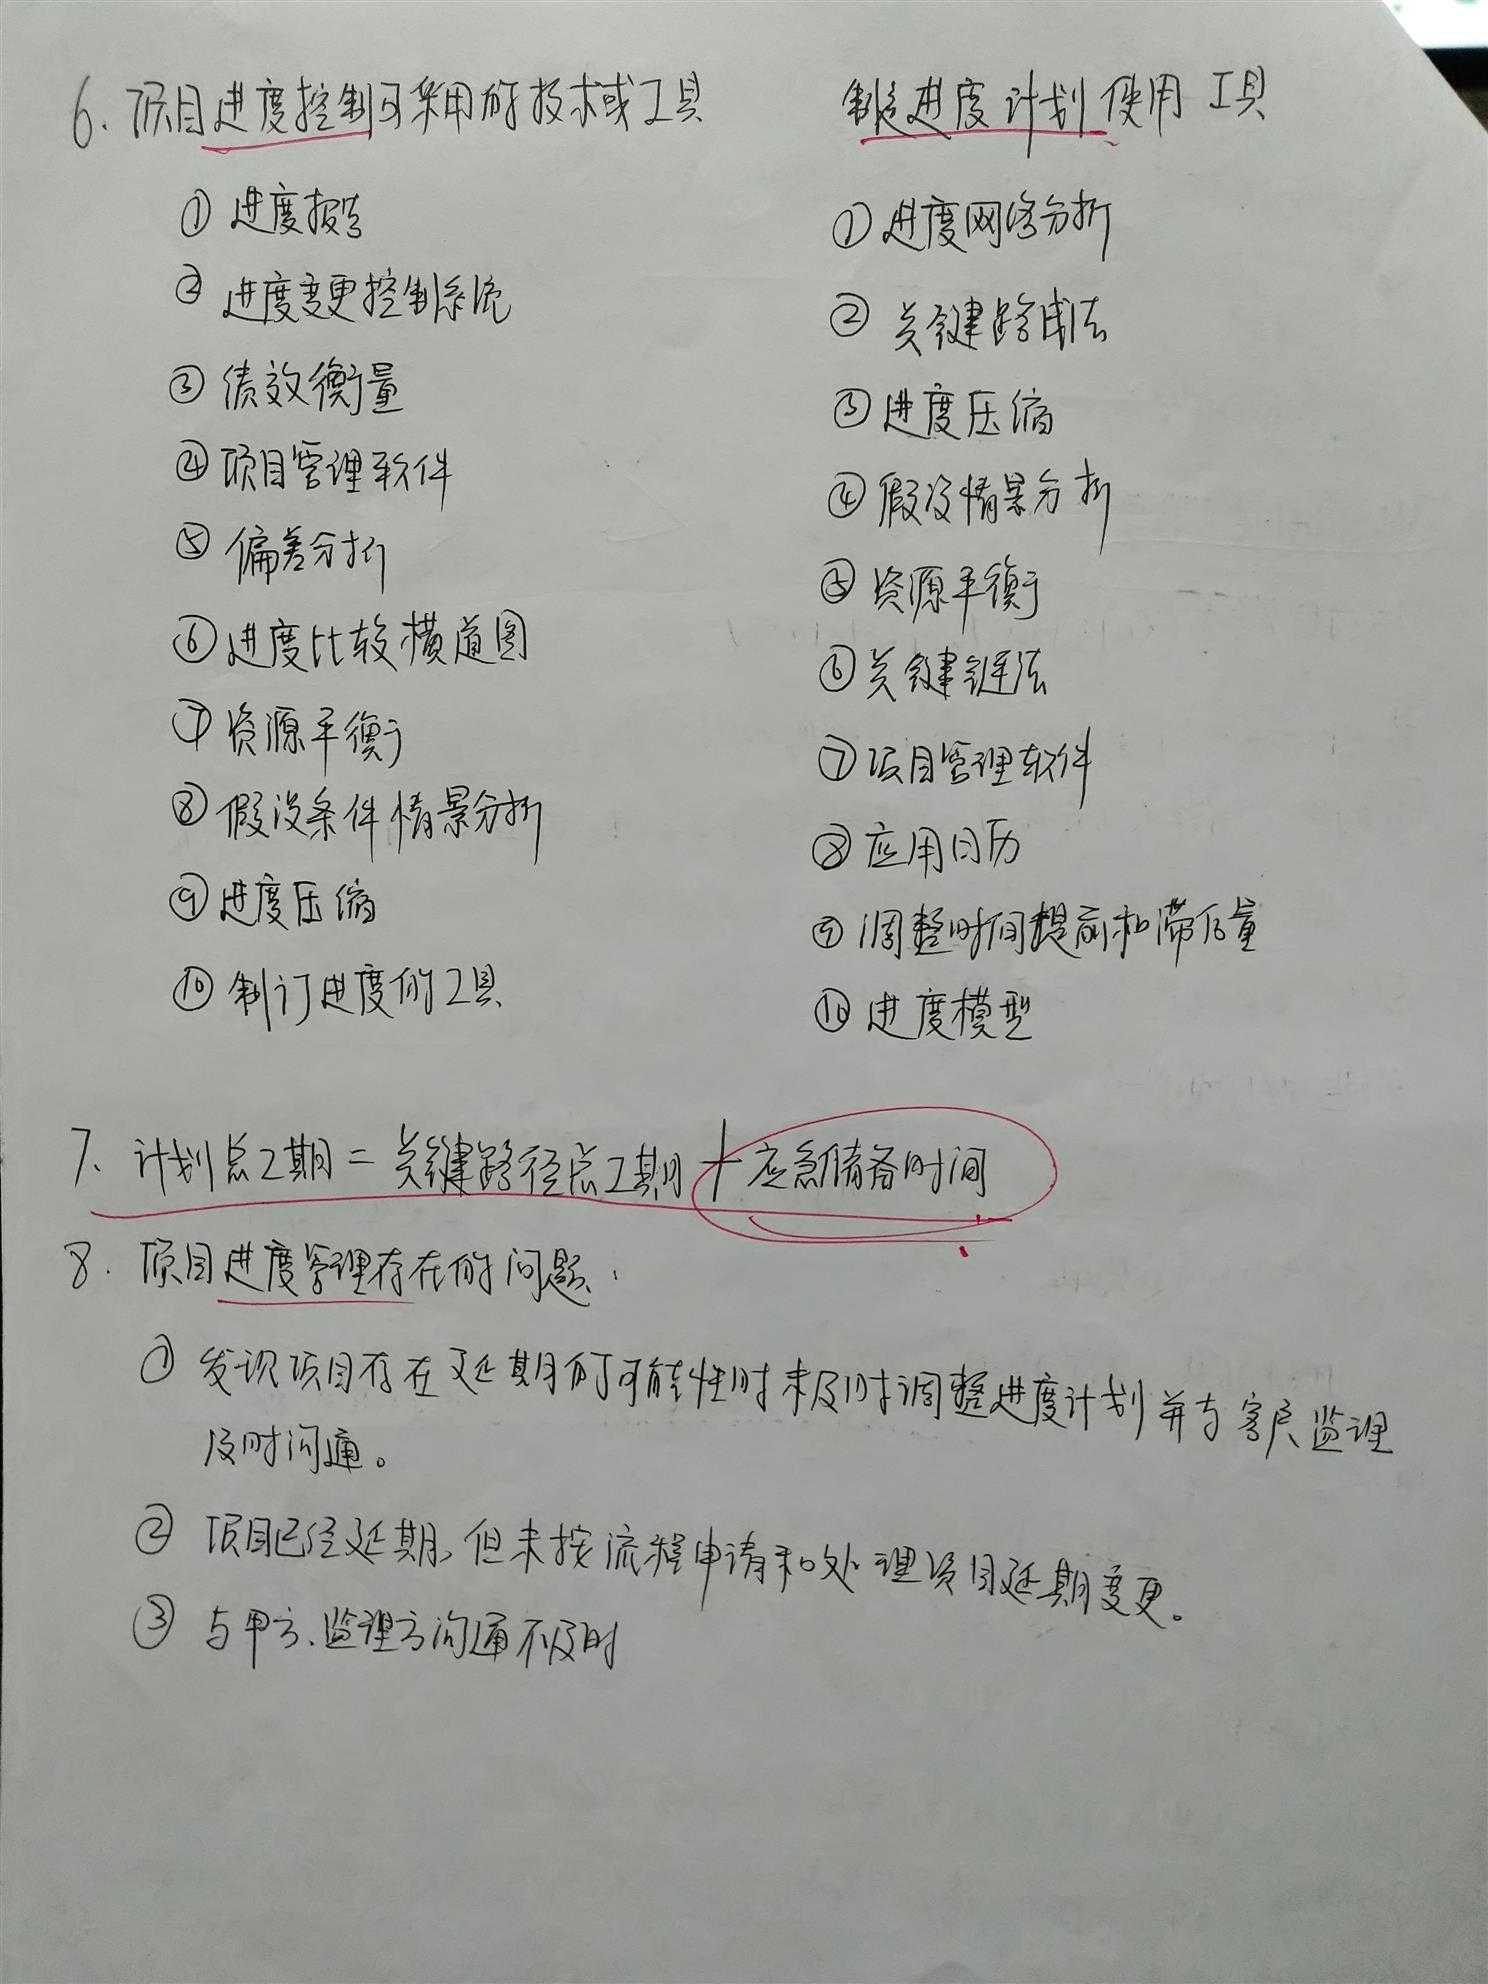 6. 项目进度控制可采用的技术或工具
① 进度报告
② 进度变更控制系统
③ 绩效衡量
④ 项目管理软件
⑤ 偏差分析
⑥ 进度比较横道图
⑦ 资源平衡
⑧ 假设条件情景分析
⑨ 进度压缩
⑩ 制订进度的工具
制定进度计划使用工具
① 进度网络分析
② 关键路线法
③ 进度压缩
④ 假设情景分析
⑤ 资源平衡
⑥ 关键链法
⑦ 项目管理软件
⑧ 应用日历
⑨ 调整时间提前和滞后量
⑩ 进度模型
7. 计划总工期 = 关键路径总工期 + 应急储备时间
8. 项目进度管理存在的问题.
① 发现项目存在延期的可能性时未及时调整进度计划并与客户、监理
及时沟通。
② 项目已经延期，但未按流程申请和处理项目延期变更。
③ 与甲方、监理方沟通不及时